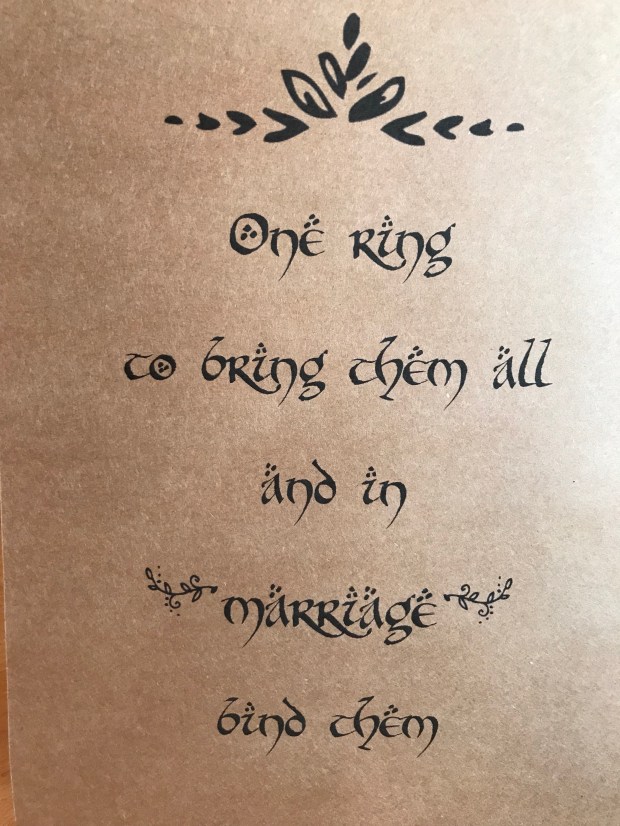 One ring
to bring them all
and in
marriage
bind them